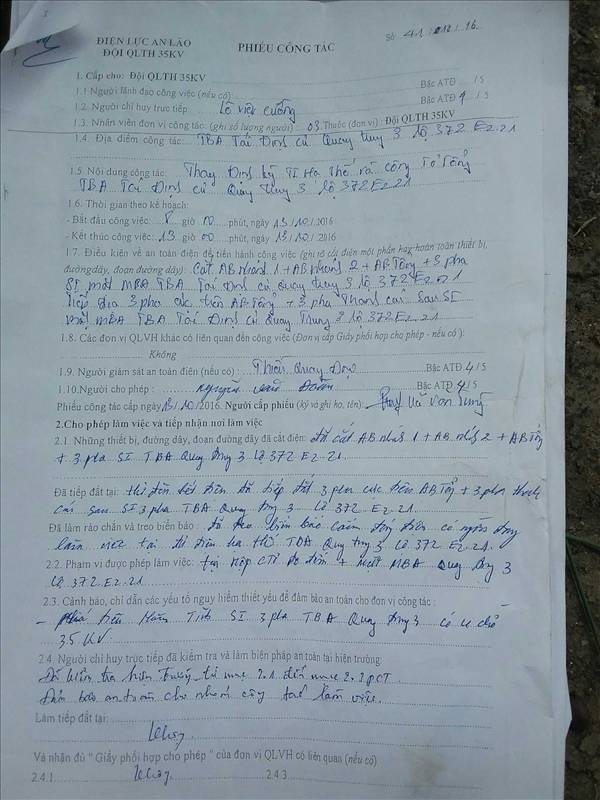 Số: 41/ /16
ĐIỆN LỰC AN LÃO
PHIẾU CÔNG TÁC
ĐỘI QLTH 35KV
1. Cấp cho: Đội QLTH 35KV
1.1 Người lãnh đạo công việc (nếu có): Bậc ATĐ / 5
1.2. Người chỉ huy trực tiếp: Lê Việt Cường Bậc ATĐ 4 / 5
1.3. Nhân viên đơn vị công tác: (ghi số lượng người) 03 Thuộc (đơn vị): Đội QLTH 35KV
1.4. Địa điểm công tác: TBA Tái Định cư Quang Trung 3 lộ 372 E2.21
1.5. Nội dung công tác: Thay Định kỳ TI Hạ Thế và công Tơ Tổng
TBA Tái Định cư Quang Trung 3 lộ 372 E2.21
1.6. Thời gian theo kế hoạch:
- Bắt đầu công việc: 8 giờ 00 phút, ngày 13/10/2016
- Kết thúc công việc: 13 giờ 00 phút, ngày 13/10/2016
1.7. Điều kiện về an toàn điện để tiến hành công việc (ghi rõ cắt điện một phần hay hoàn toàn thiết bị,
đường dây, đoạn đường dây): Cắt AB nhánh 1 + AB nhánh 2 + AB Tổng + 3 pha
SI MBA TBA Tái Định cư Quang Trung 3 lộ 372 E2.21
Tiếp địa 3 pha cực trên AB Tổng + 3 pha Thanh cái sau SI
MBA TBA Tái Định cư Quang Trung 3 lộ 372 E2.21
1.8. Các đơn vị QLVH khác có liên quan đến công việc (Đơn vị cấp Giấy phối hợp cho phép - nếu có):
Không
1.9. Người giám sát an toàn điện (nếu có): Quang Bậc ATĐ 4 / 5
1.10. Người cho phép: Nguyễn Bậc ATĐ 4 / 5
Phiếu công tác cấp ngày 13/10/2016. Người cấp phiếu (ký và ghi họ, tên): Vũ Văn
2. Cho phép làm việc và tiếp nhận nơi làm việc
2.1. Những thiết bị, đường dây, đoạn đường dây đã cắt điện: Đã cắt AB nhánh 1 + AB nhánh 2 + AB Tổng
+ 3 pha SI TBA Quang Trung 3 lộ 372 E2.21
Đã tiếp đất tại: thử điện hết điện đã tiếp đất 3 pha cực trên AB Tổng + 3 pha thanh
cái sau SI 3 pha TBA Quang Trung 3 lộ 372 E2.21
Đã làm rào chắn và treo biển báo: đã treo biển báo cấm đóng điện có người đang
làm việc tại tủ điện hạ thế TBA Quang Trung 3 lộ 372 E2.21
2.2. Phạm vi được phép làm việc: Tại hộp đo đếm + MBA Quang Trung 3
lộ 372 E2.21
2.3. Cảnh báo, chỉ dẫn các yếu tố nguy hiểm thiết yếu để đảm bảo an toàn cho đơn vị công tác:
- Phía trên SI 3 pha TBA Quang Trung 3 có
35 KV
2.4. Người chỉ huy trực tiếp đã kiểm tra và làm biện pháp an toàn tại hiện trường:
Đã kiểm tra hiện trường từ mục 2.1 đến mục 2.3 PCT
Đảm bảo an toàn cho nhóm công tác làm việc.
Làm tiếp đất tại:
Không
Và nhận đủ " Giấy phối hợp cho phép " của đơn vị QLVH có liên quan (nếu có)
2.4.1. Không 2.4.3.